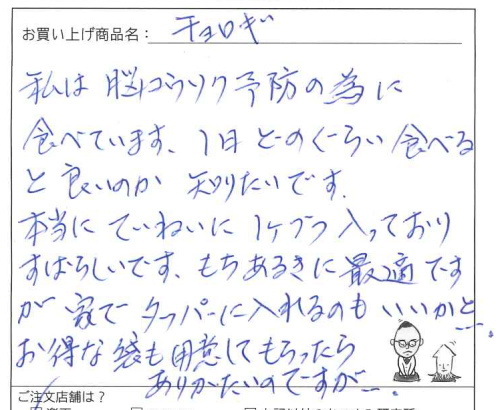 お買い上げ商品名： チョロギ
私は脳コウソク予防の為に
食べています、1日どのくらい食べる
と良いのか 知りたいです。
本当にていねいに1ケづつ入っており
すばらしいです、もちあるきに最適です
が 家でタッパーに入れるのもいいかと…。
お得な袋も用意してもらったら
ありがたいのですが…。
ご注文店舗は？